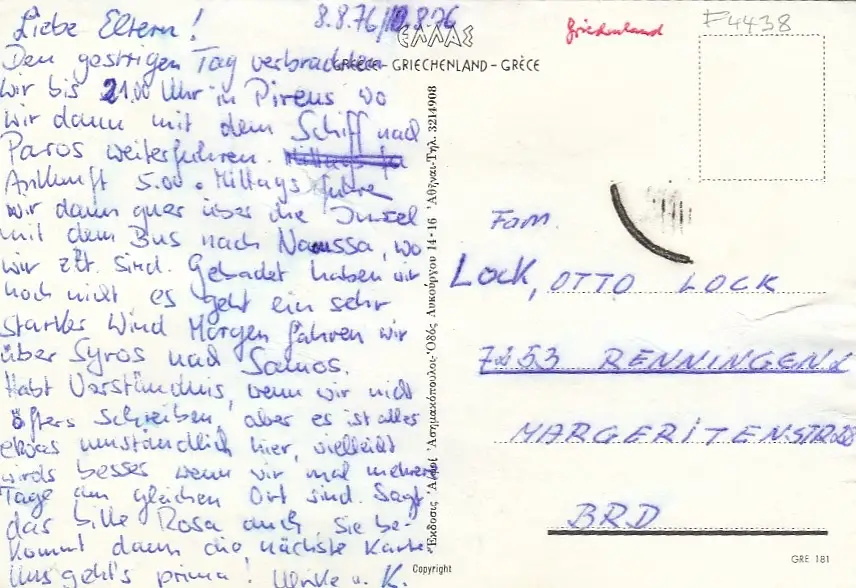 Liebe Eltern! 8.8.76/
Den gestrigen Tag verbrachten
wir bis 21.00 Uhr in Pireus wo
wir dann mit dem Schiff nach
Paros weiterfuhren.
Ankunft 5.00. Mittags fuhren
wir dann quer über die Insel
mit dem Bus nach Naussa, wo
wir zZt. sind. Gebadet haben wir
noch nicht es geht ein sehr
starker Wind Morgen fahren wir
über Syros nach Samos.
Habt Verständnis, wenn wir nicht
öfters schreiben, aber es ist alles
etwas umständlich hier, vielleicht
wirds besser wenn wir mal mehrere
Tage am gleichen Ort sind. Sagt
das bitte Rosa auch sie be-
kommt dann die nächste Karte
Uns geht's prima! Ulrike u. K.
ΕΛΛΑΣ
GREECE - GRIECHENLAND - GRÈCE
Griechenland
F4438
Ἔκδοσις Ἀφοί Ἀσημακόπουλοι-Ὁδὸς Λυκούργου 14-16 Ἀθῆναι-Τηλ. 3214908
Copyright
Fam.
Lock, OTTO LOCK
7253 RENNINGEN
MARGERITENSTR
BRD
GRE 181